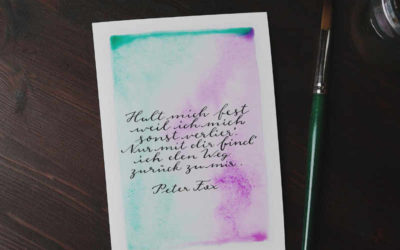 Halt mich fest
weil ich mich
sonst verlier'
Nur mit dir find'
ich den Weg
zurück zu mir.
Peter Fox